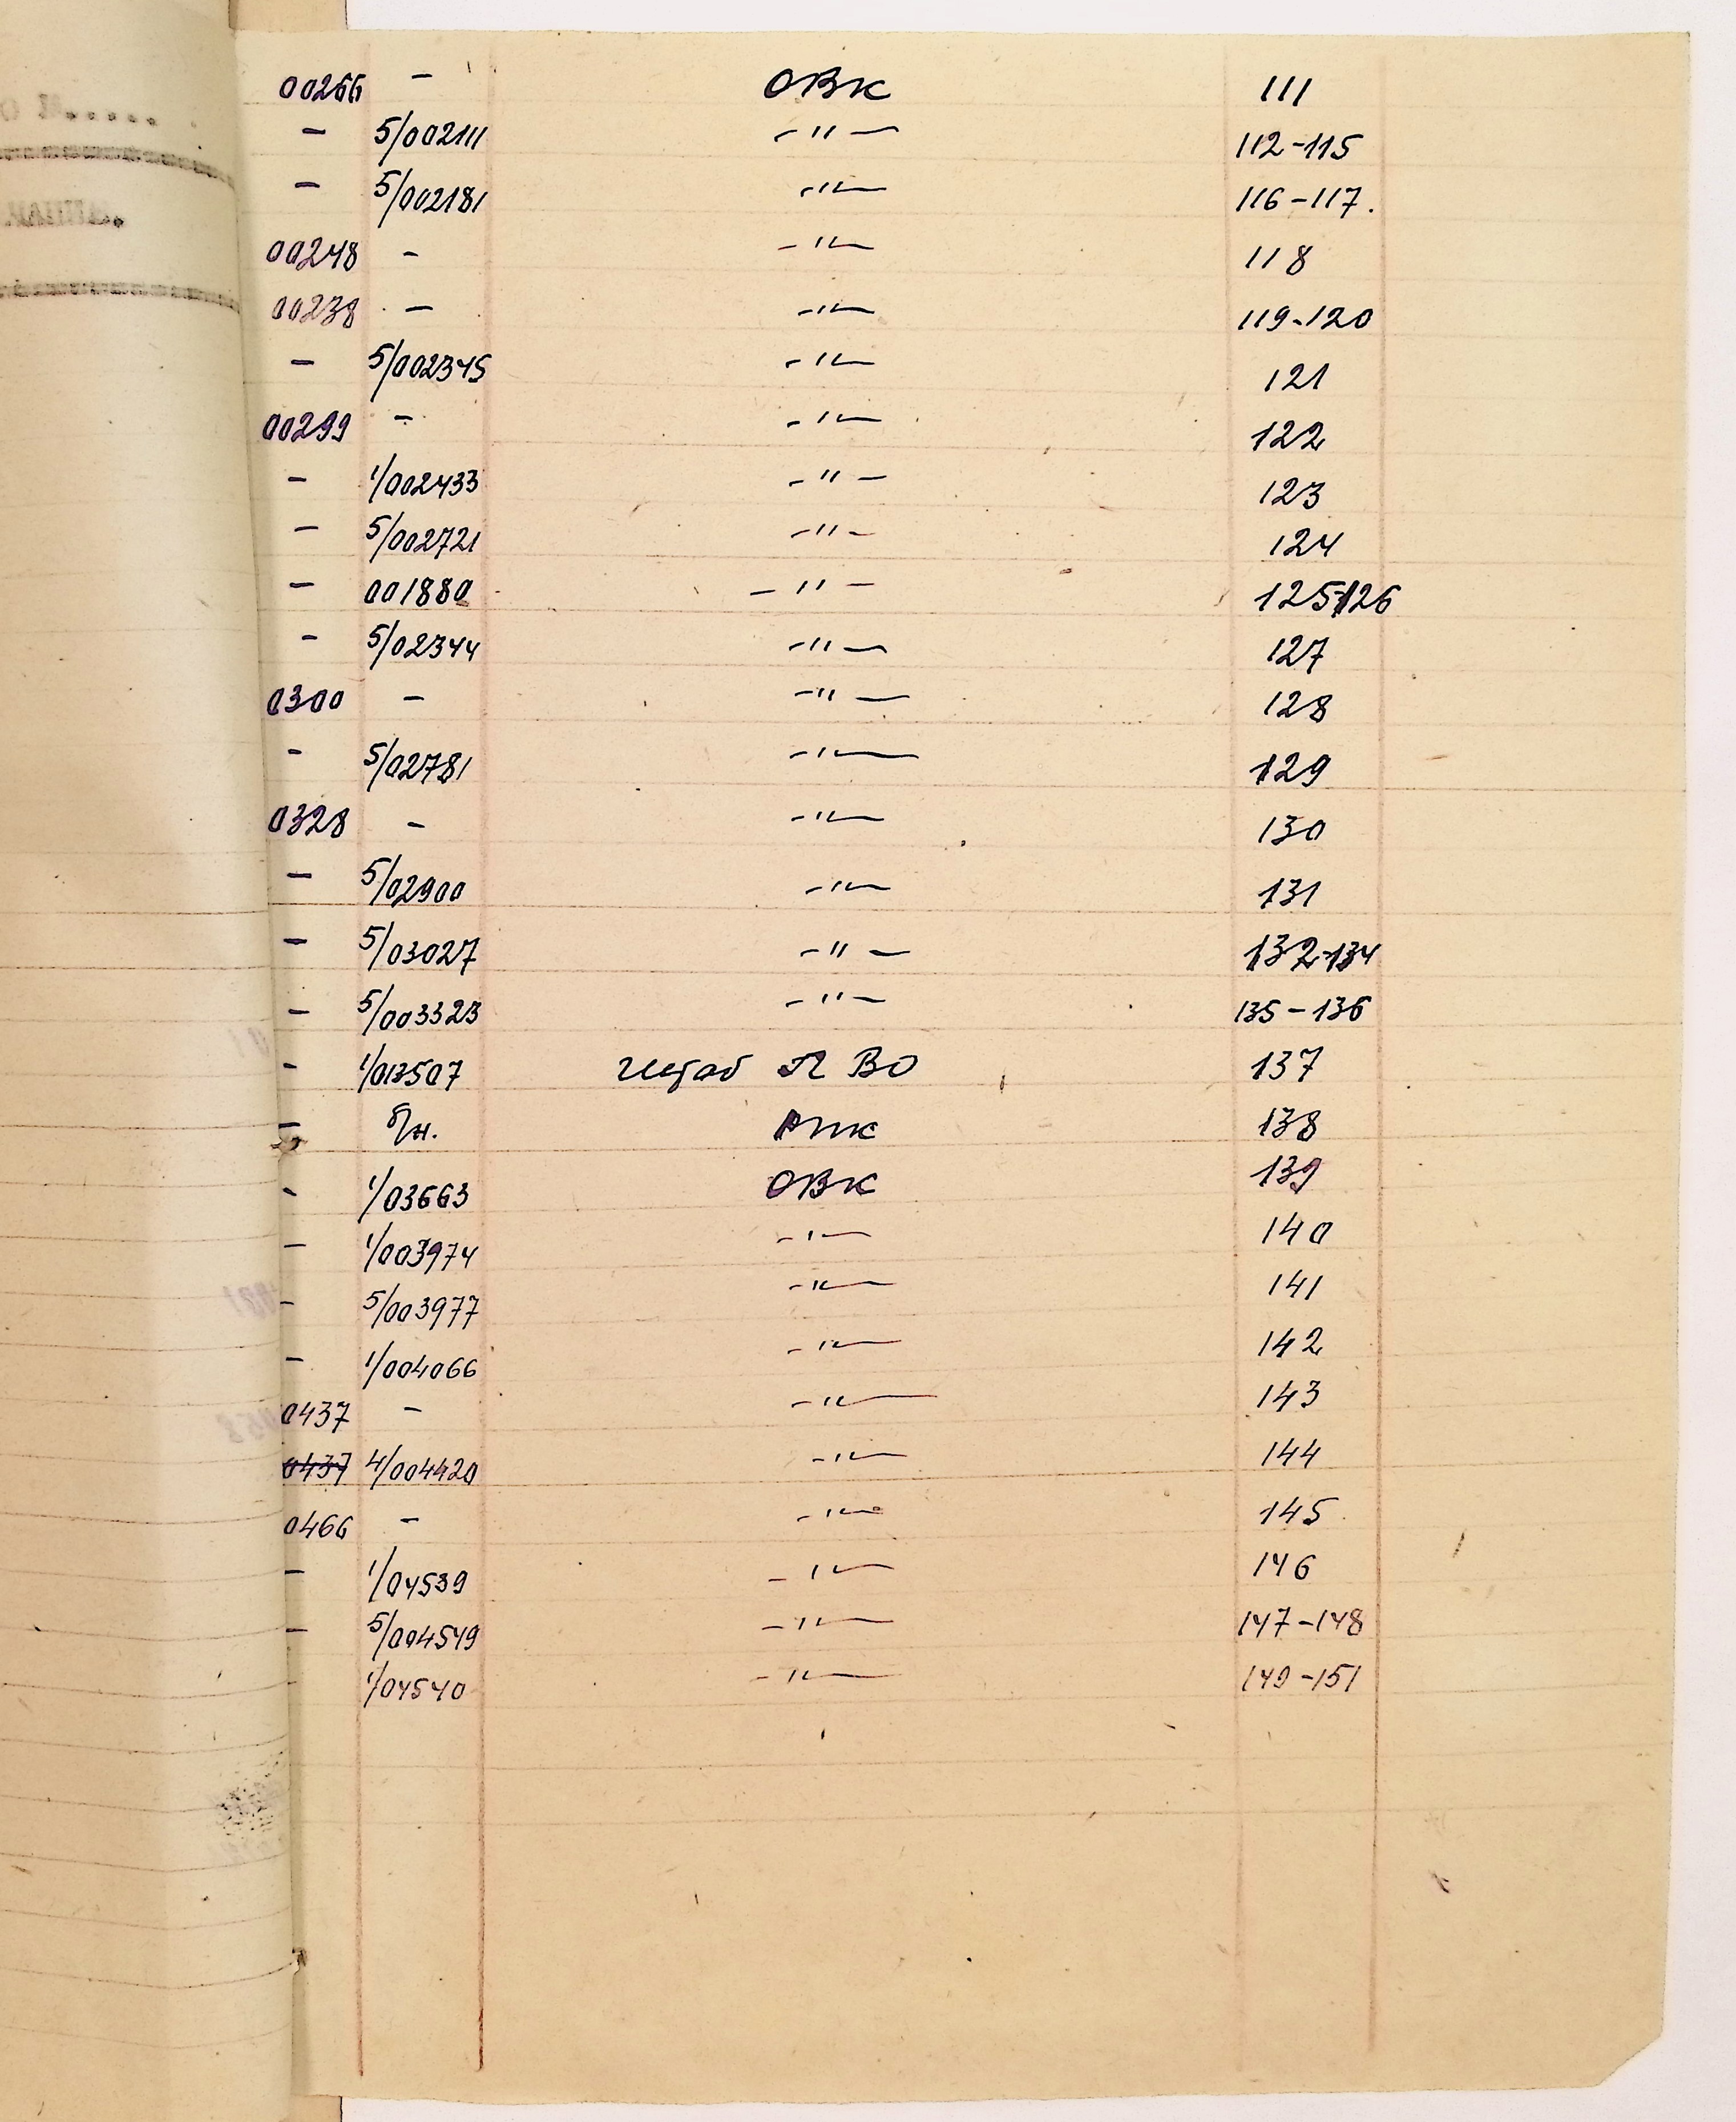 00266 – ОВК 111
– 5/002111 –"– 112-115
– 5/002181 –"– 116-117.
00248 – –"– 118
00238 – –"– 119-120
– 5/002345 –"– 121
00299 – –"– 122
– 1/002433 –"– 123
– 5/002721 –"– 124
– 001880 –"– 125-126
– 5/02344 –"– 127
0300 – –"– 128
– 5/02781 –"– 129
0328 – –"– 130
– 5/02900 –"– 131
– 5/03027 –"– 132-134
– 5/003323 –"– 135-136
– 1/013507 штаб П ВО 137
– б/н. РИК 138
– 1/03663 ОВК 139
– 1/003974 –"– 140
– 5/003977 –"– 141
– 1/004066 –"– 142
0437 – –"– 143
0437 4/004420 –"– 144
0466 – –"– 145
– 1/04539 –"– 146
– 5/004549 –"– 147-148
– 1/04540 –"– 149-151